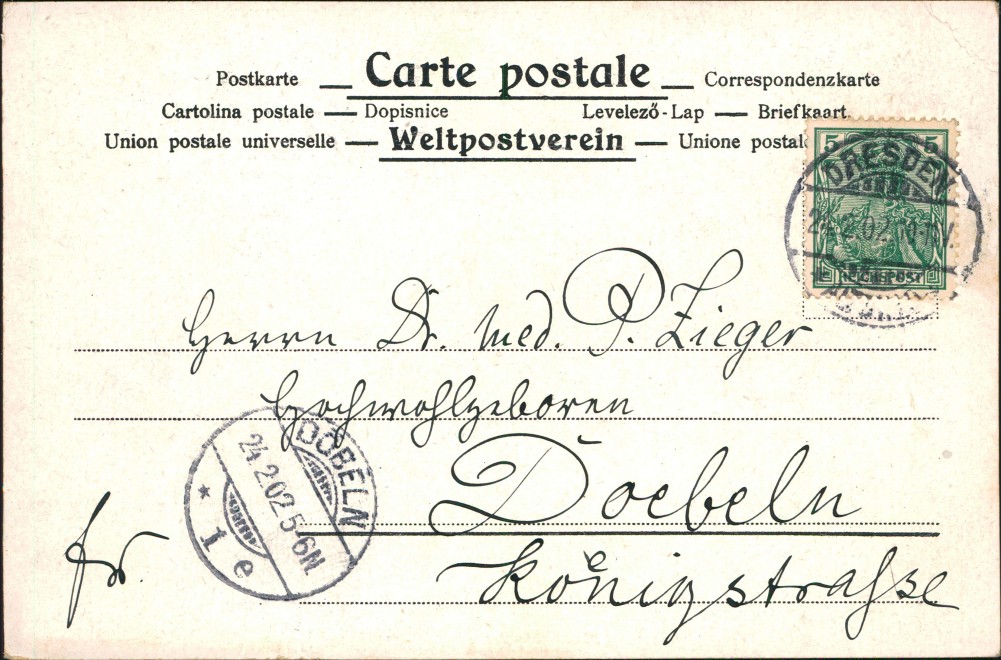 Postkarte — Carte postale — Correspondenzkarte
Cartolina postale — Dopisnice Levelező-Lap — Briefkaart.
Union postale universelle — Weltpostverein — Unione postale
5 5
REICHSPOST
DRESDEN
24.2.02.
Herrn Dr. med. P. Zieger
Hochwohlgeboren
Doebeln
Königstraſse
fr.
DÖBELN
24.2.02.5-6N.
* 1 e